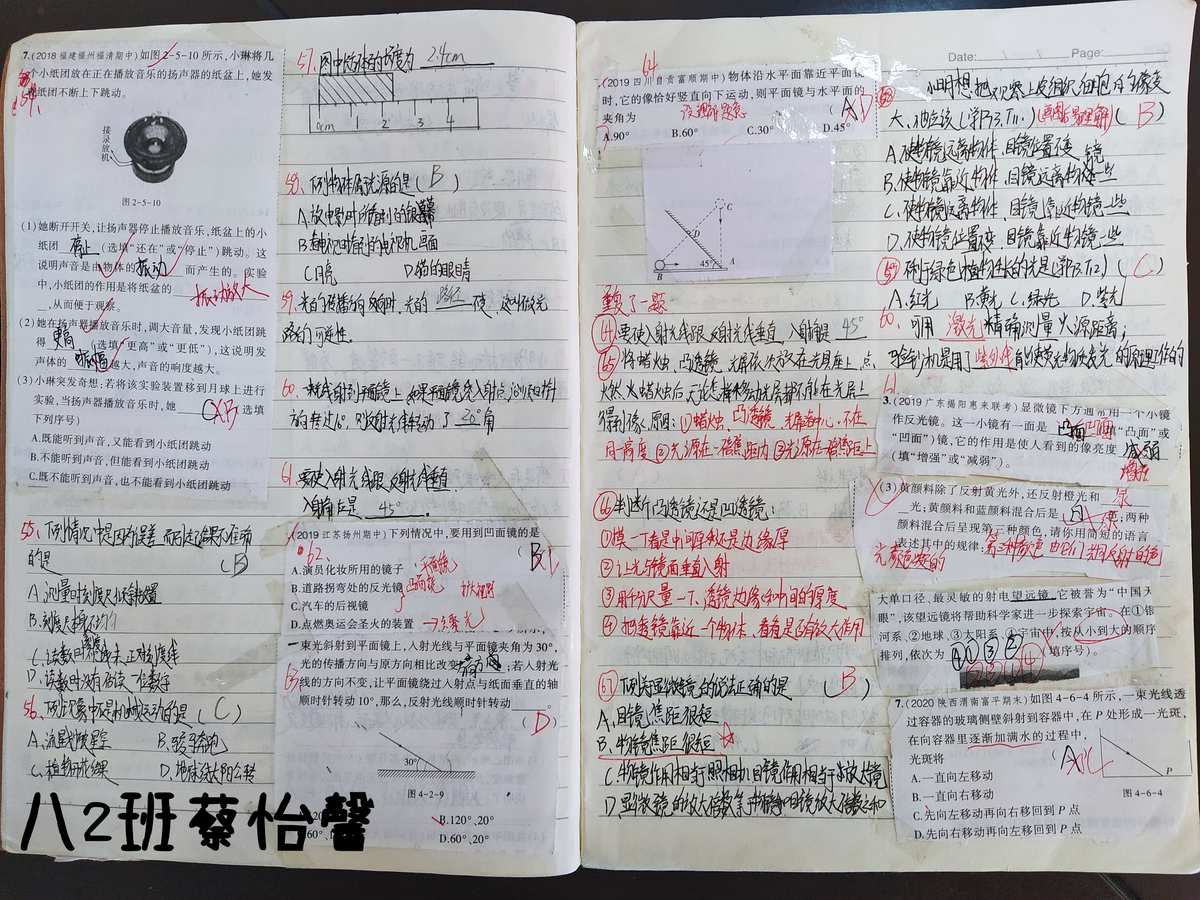 7.(2018福建福州福清期中)如图2-5-10所示,小琳将几
个小纸团放在正在播放音乐的扬声器的纸盆上,她发
现纸团不断上下跳动。
接录放机
图2-5-10
(1)她断开开关,让扬声器停止播放音乐,纸盆上的小
纸团 停止 (选填“还在”或“停止”)跳动。这
说明声音是由物体的 振动 而产生的。实验
中,小纸团的作用是将纸盆的 振动放大
,从而便于观察。
(2)她在扬声器播放音乐时,调大音量,发现小纸团跳
得 更高 (选填“更高”或“更低”),这说明发
声体的 振幅 越大,声音的响度越大。
(3)小琳突发奇想:若将该实验装置移到月球上进行
实验,当扬声器播放音乐时,她 B 选填
下列序号)
A.既能听到声音,又能看到小纸团跳动
B.不能听到声音,但能看到小纸团跳动
C.既不能听到声音,也不能看到小纸团跳动
55.下列情况中是因为误差而引起结果不准确
的是 (B)
A.测量时刻度尺倾斜放置
B.刻度尺刻度不均匀
D.读数时没有估读一位数字
56.下列现象中是机械运动的是(C)
A.流星划破星空
B.骏马奔跑
C.植物开花结果
D.地球绕太阳公转
八2班蔡怡馨
57.图中物体的长度为 2.4cm
0cm 1 2 3 4
58.下列物体属于光源的是(B)
A.放电影时所看到的银幕
B.看电视时看到的电视机画面
C.月亮
D.猫的眼睛
路的可逆性。
61.要使入射光线跟反射光线垂直
入射角应是 45°。
62
(2019江苏扬州期中)下列情况中,要用到凹面镜的是
A.演员化妆所用的镜子 平面镜
B.道路拐弯处的反光镜 凸面镜
C.汽车的后视镜 扩大视野
D.点燃奥运会圣火的装置
63
一束光斜射到平面镜上,入射光线与平面镜夹角为30°,
光的传播方向与原方向相比改变
,若入射光
线的方向不变,让平面镜绕过入射点与纸面垂直的轴
顺时针转动10°,那么,反射光线顺时针转动
(D)
30°
图4-2-9
B.120°、20°
D.60°、20°
64
(2019四川自贡富顺期中)物体沿水平面靠近平面镜
时,它的像恰好竖直向下运动,则平面镜与水平面的
夹角为 没理解题意 (A D
A.90° B.60° C.30° D.45°
C
D
B 45° A
重复了一题
64要使入射光线跟反射光线垂直 入射角是 45°
65将蜡烛、凸透镜、光屏依次放在光具座上,点
燃蜡烛后,无论怎样移动光屏都不能在光屏上
得到像,原因:①蜡烛、凸透镜、光屏的中心不在
同一高度 ②光源在一倍焦距内 ③光源在一倍焦距上
66判断凸透镜还是凹透镜:
①摸一下看是中间厚还是边缘厚
②让光与镜面垂直入射
③用千分尺量一下透镜边缘和中间的厚度
④把透镜靠近一个物体,看看是否有放大作用
67下列关于显微镜的说法正确的是 (B)
A.目镜焦距很短
B.物镜焦距很短
C.物镜作用相当于照相机,目镜作用相当于放大镜
D.显微镜的放大倍数等于物镜和目镜放大倍数之和
Date: Page:
58 小明想把观察上皮组织细胞的像变
大,他应该(学B3.T11.) (B)
A.使物镜远离物体,目镜位置不变
B.使物镜靠近物体,目镜远离物镜一些
C.使物镜远离物体,目镜靠近物镜一些
D.使物镜位置不变,目镜靠近物镜一些
(C)
A.红光 B.黄光 C.绿光 D.紫光
60.可用 激光 精确测量火源距离;
验钞机是用了 紫外线 有能使荧光物质发光的原理工作的
61
3.(2019广东揭阳惠来联考)显微镜下方通常用一个小镜
作反光镜。这一小镜有一面是 凹面 (“凸面”或
“凹面”)镜,它的作用是使人看到的像亮度 增强
(填“增强”或“减弱”)。
(3)黄颜料除了反射黄光外,还反射橙光和 绿
光;黄颜料和蓝颜料混合后是 绿 ;两种
颜料混合后呈现第三种颜色,请你用简短的语言
表述其中的规律:第三种颜色由它们共同反射的色
光颜色决定的
大单口径、最灵敏的射电望远镜,它被誉为“中国天
眼”,该望远镜将帮助科学家进一步探索宇宙。在①银
河系、②地球、③太阳系、④宇宙中,按从小到大的顺序
排列,依次为 ②③①④ (填序号)。
7.(2020陕西渭南富平期末)如图4-6-4所示,一束光线透
过容器的玻璃侧壁斜射到容器中,在P处形成一光斑,
在向容器里逐渐加满水的过程中,
光斑将
A.一直向左移动
B.一直向右移动
C.先向左移动再向右移回到P点
D.先向右移动再向左移回到P点
P
图4-6-4